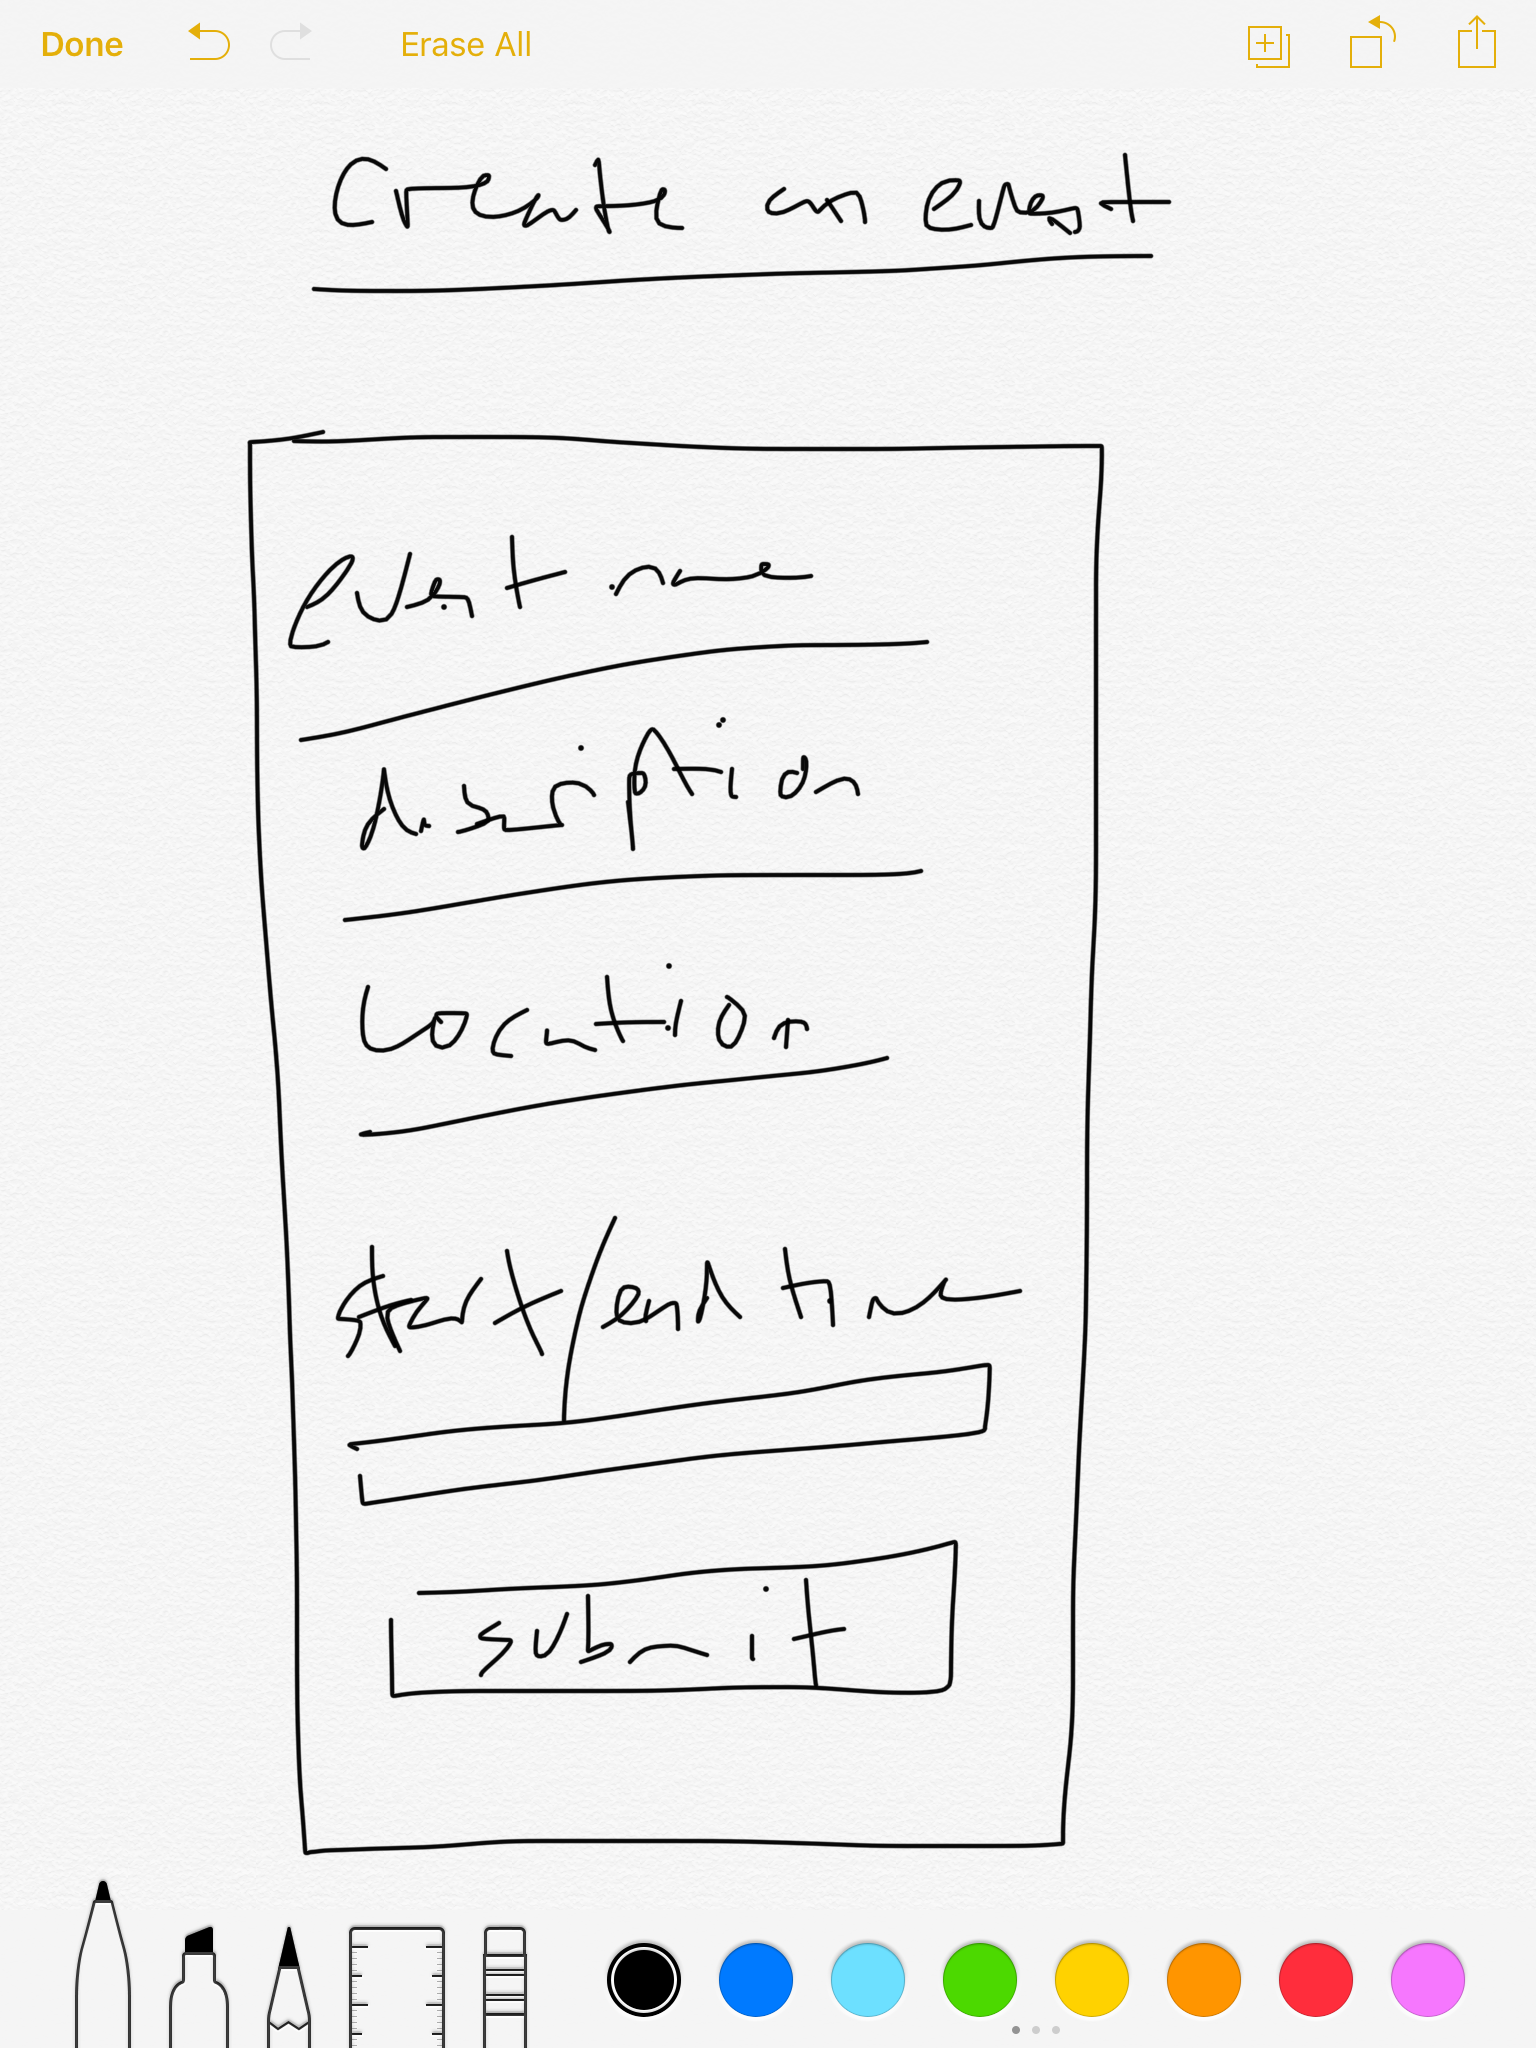 Done Erase All
Create an event
event name
description
Location
start/end time
submit